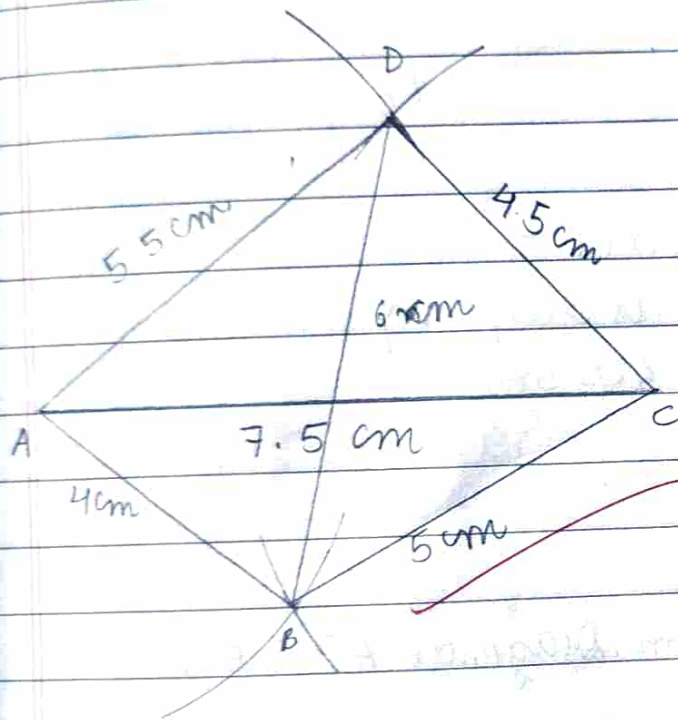 D
5.5 cm
4.5 cm
6 cm
A
7.5 cm
C
4cm
5 cm
B